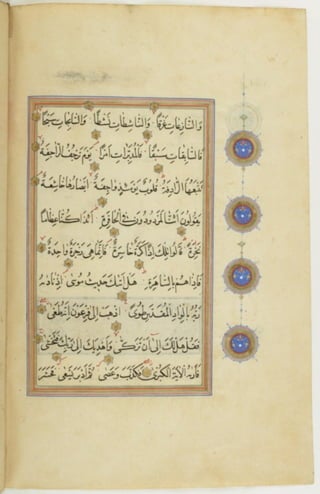 وَالنَّازِعَاتِ غَرْقًا وَالنَّاشِطَاتِ نَشْطًا وَالسَّابِحَاتِ سَبْحًا
فَالسَّابِقَاتِ سَبْقًا فَالْمُدَبِّرَاتِ أَمْرًا يَوْمَ تَرْجُفُ الرَّاجِفَةُ
تَتْبَعُهَا الرَّادِفَةُ قُلُوبٌ يَوْمَئِذٍ وَاجِفَةٌ أَبْصَارُهَا خَاشِعَةٌ
يَقُولُونَ أَئِنَّا لَمَرْدُودُونَ فِي الْحَافِرَةِ أَئِذَا كُنَّا عِظَامًا
نَخِرَةً قَالُوا تِلْكَ إِذًا كَرَّةٌ خَاسِرَةٌ فَإِنَّمَا هِيَ زَجْرَةٌ وَاحِدَةٌ
فَإِذَا هُمْ بِالسَّاهِرَةِ هَلْ أَتٰىكَ حَدِيثُ مُوسَى إِذْ نَادٰىهُ
رَبُّهُ بِالْوَادِ الْمُقَدَّسِ طُوًى اذْهَبْ إِلَى فِرْعَوْنَ إِنَّهُ طَغَى
فَقُلْ هَلْ لَكَ إِلَى أَنْ تَزَكَّى وَأَهْدِيَكَ إِلَى رَبِّكَ فَتَخْشَى
فَأَرٰىهُ الْآيَةَ الْكُبْرَى فَكَذَّبَ وَعَصَى ثُمَّ أَدْبَرَ يَسْعَى فَحَشَرَ